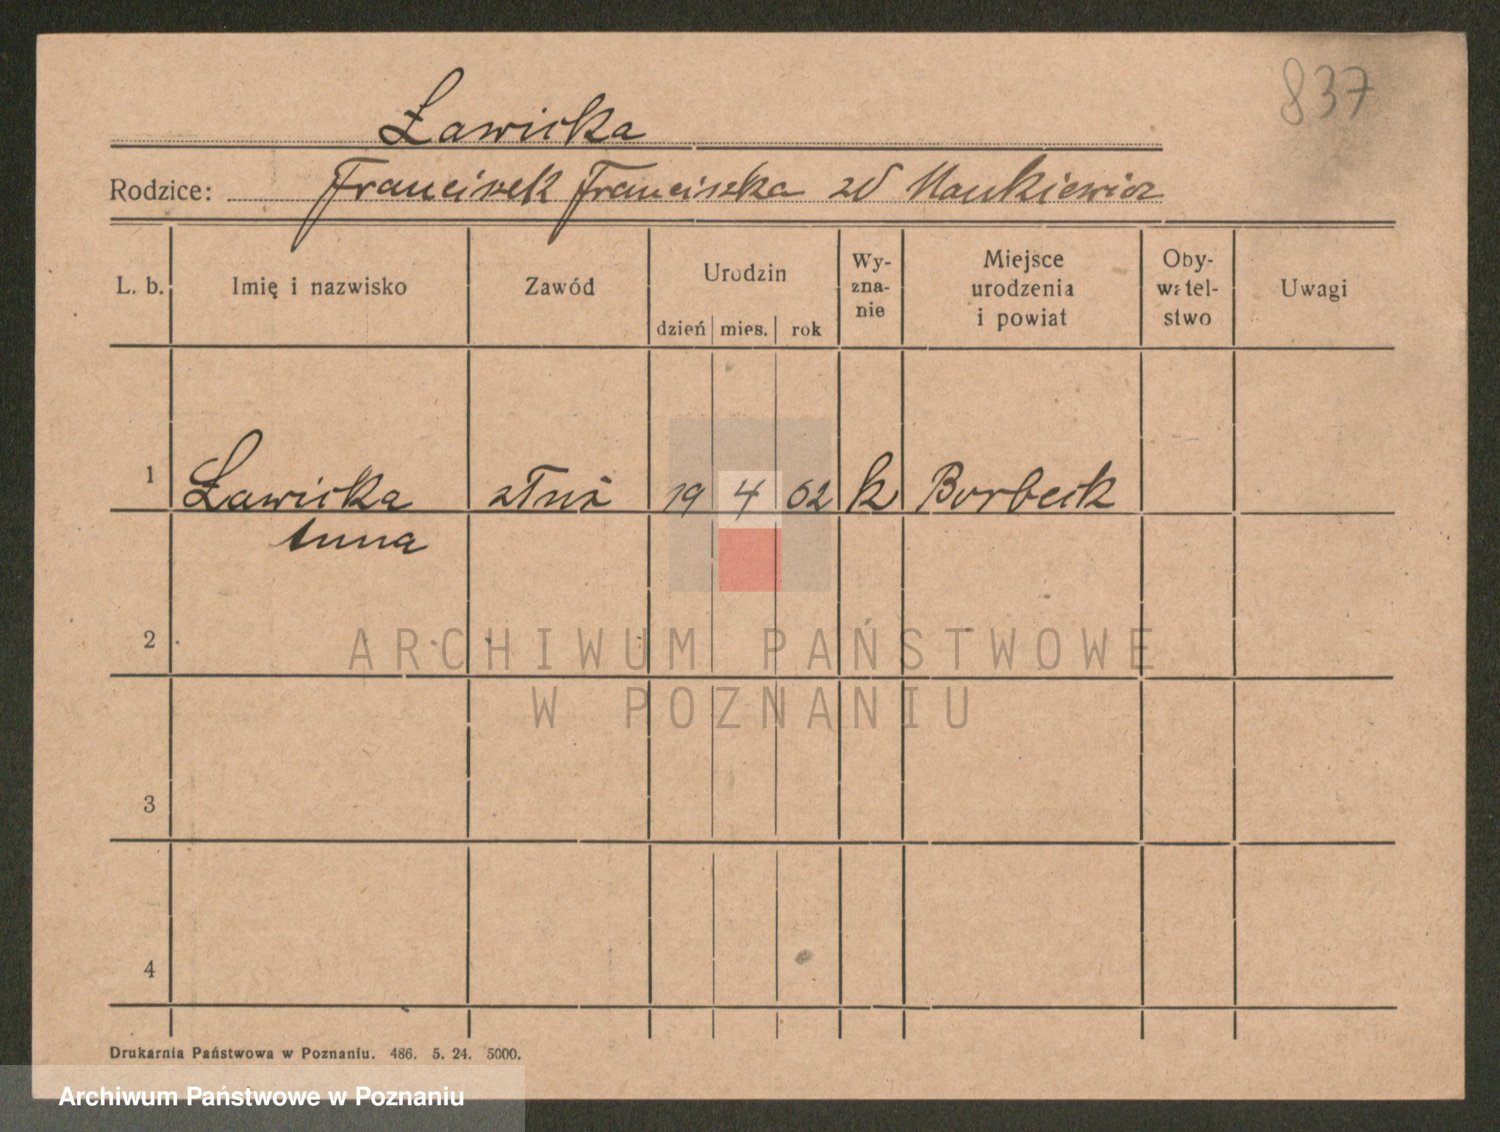 837
Ławicka
Rodzice: Franciszek Franciszka zd Mankiewicz
L. b. Imię i nazwisko Zawód Urodzin dzień mies. rok Wy-zna-nie Miejsce urodzenia i powiat Oby-watel-stwo Uwagi
1 Ławicka służ 19 4 02 k Borbeck
Anna
2
3
4
ARCHIWUM PAŃSTWOWE
W POZNANIU
Drukarnia Państwowa w Poznaniu. 486. 5. 24. 5000.
Archiwum Państwowe w Poznaniu